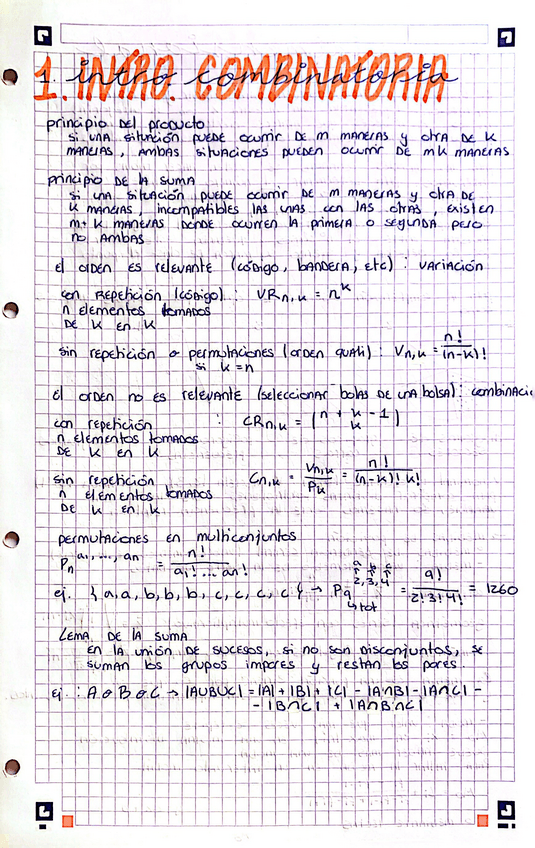 1. intro. COMBINATORIA
principio DEL producto
si una situación puede ocurrir de m maneras y otra de k
maneras, ambas situaciones pueden ocurrir de mk maneras
principio DE LA SUMA
si una situación puede ocurrir de m maneras y otra de
k maneras, incompatibles las unas con las otras, existen
m+k maneras donde ocurren la primera o segunda pero
no ambas
el orden es relevante (código, bandera, etc) : variación
con repetición (código) : VRn,k = n^k
n elementos tomados
de k en k
sin repetición o permutaciones (orden quali) : Vn,k = n!/(n-k)!
si k=n
el orden no es relevante (seleccionar bolas de una bolsa) : combinació
con repetición : CRn,k = (n + k - 1 / k)
n elementos tomados
de k en k
sin repetición Cn,k = Vn,k/Pk = n!/(n-k)! k!
n elementos tomados
de k en k
permutaciones en multiconjuntos
Pn^a1, ..., an = n!/a1! ... an!
ej. { a, a, b, b, b, c, c, c, c } → P9^2,3,4 = 9!/2! 3! 4! = 1260
a b c
↳ tot
LEMA DE LA SUMA
En la unión de sucesos, si no son disconjuntos, se
suman los grupos impares y restan los pares.
ej : A o B o C → |AUBUC| = |A| + |B| + |C| - |A∩B| - |A∩C| -
- |B∩C| + |A∩B∩C|